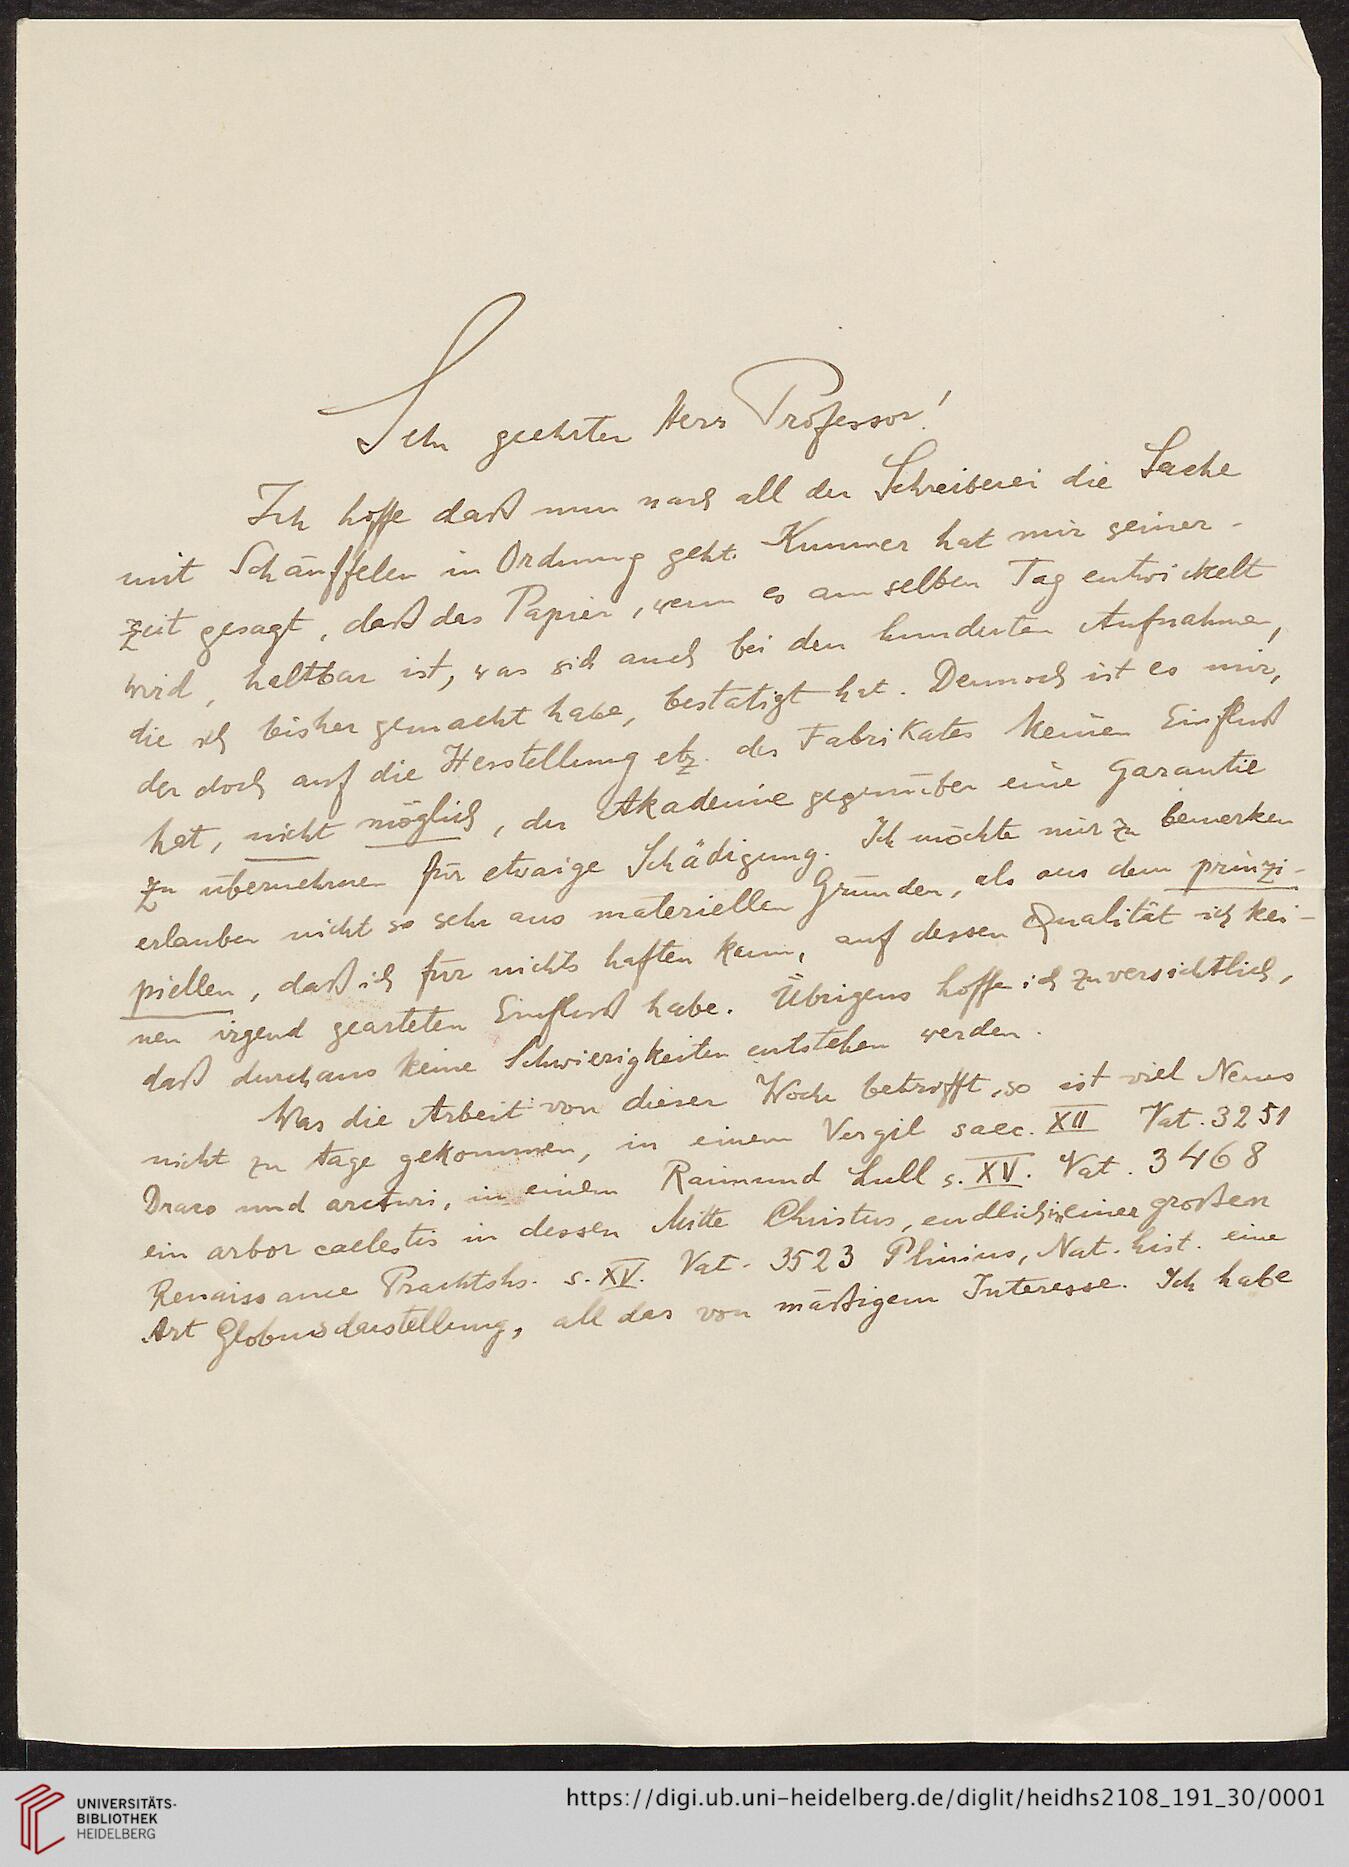 Sehr geehrter Herr Professor!
Ich hoffe daß nun nach all der Schreiberei die Sache
mit Schäuffelen in Ordnung geht. Kummer hat mir seiner-
zeit gesagt, daß das Papier, wenn es am selben Tag entwickelt
wird, haltbar ist, was sich auch bei den hunderten Aufnahmen,
die ich bisher gemacht habe, bestätigt hat. Dennoch ist es mir,
der doch auf die Herstellung etz. des Fabrikates keinen Einfluß
hat, nicht möglich, der Akademie gegenüber eine Garantie
zu übernehmen für etwaige Schädigung. Ich möchte mir zu bemerken
erlauben nicht so sehr aus materiellen Gründen, als aus dem prinzi-
piellen, daß ich für nichts haften kann, auf dessen Qualität ich kei-
nen irgend gearteten Einfluß habe. Übrigens hoffe ich zuversichtlich,
daß durchaus keine Schwierigkeiten entstehen werden.
Was die Arbeit von dieser Woche betrifft, so ist viel Neues
nicht zu tage gekommen, in einem Vergil saec. XII Vat. 3251
Draco und arcturi, in einem Raimund Lull s. XV. Vat. 3468
ein arbor caelestis in dessen Mitte Christus, endlich in einer großen
Renaissance Prachths. s. XV. Vat. 3523 Plinius, Nat. hist. eine
Art Globusdarstellung, all das von mäßigem Interesse. Ich habe
UNIVERSITÄTS-
BIBLIOTHEK
HEIDELBERG
https://digi.ub.uni-heidelberg.de/diglit/heidhs2108_191_30/0001